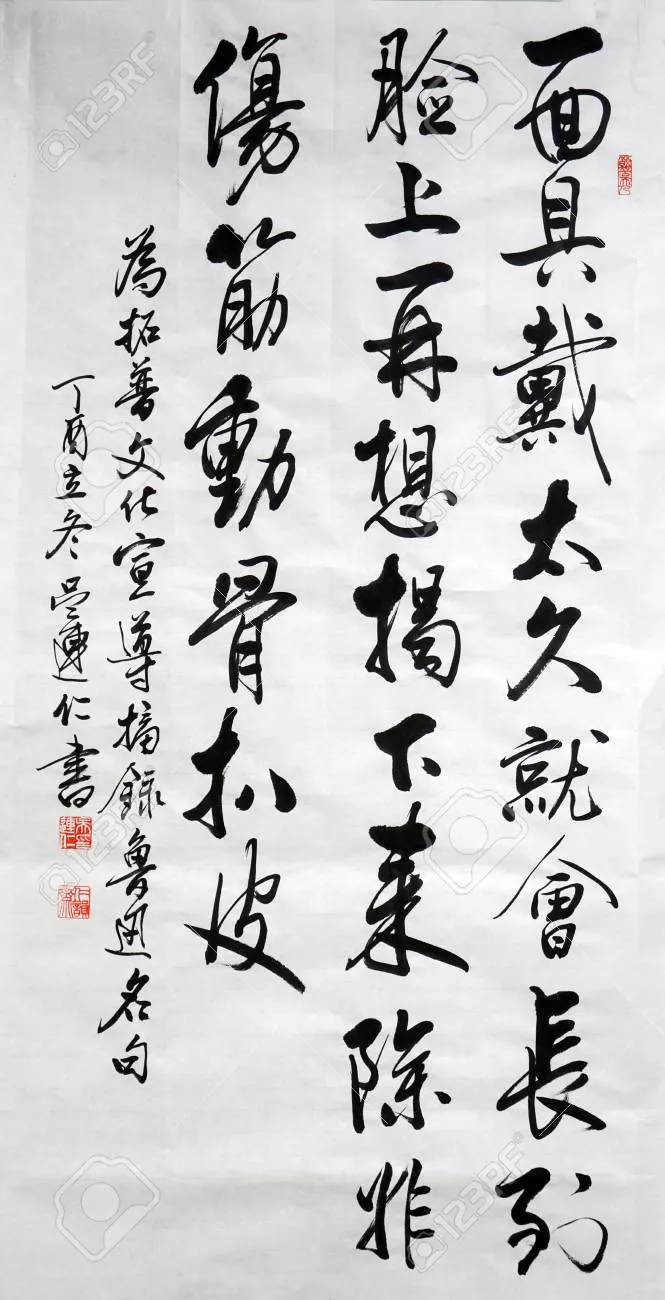 面具戴太久就會長到
臉上再想揭下來除非
傷筋動骨扒皮
為拓普文化宣導摘錄魯迅名句
丁酉立冬吴連仁書
123RF